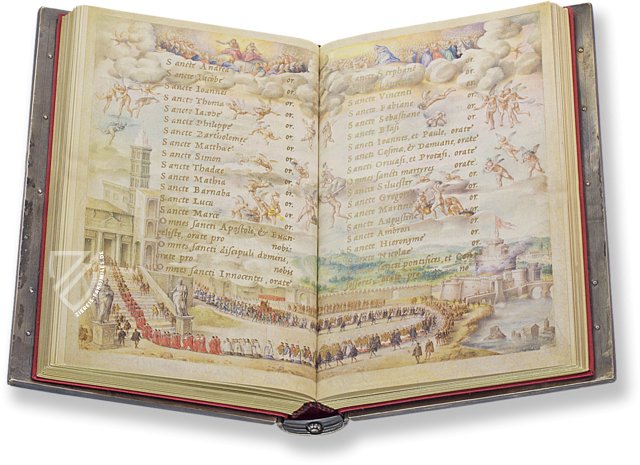 Sancte Andrea or.
Sancte Iacobe or.
Sancte Ioannes or.
Sancte Thoma or.
Sancte Iacobe or.
Sancte Philippe or.
Sancte Bartholomee or.
Sancte Matthæe or.
Sancte Simon or.
Sancte Thadæe or.
Sancte Mathia or.
Sancte Barnaba or.
Sancte Luca or.
Sancte Marce or.
Omnes Sancti Apostoli, & Euan
gelistæ, orate pro nobis
Omnes sancti discipuli domini,
orate pro nobis
Omnes sancti Innocentes, orate
Sancte Stephane or.
Sancte Vincenti or.
Sancte Fabiane or.
Sancte Sebastiane or.
Sancte Blasi or.
Sancti Ioannes, et Paule, orate
Sancti Cosma, & Damiane, orate
Sancti Geruasi, et Protasi, orate
Omnes sancti martyres orate
Sancte Siluester or.
Sancte Gregori or.
Sancte Martine or.
Sancte Augustine or.
Sancte Ambrosi or.
Sancte Hieronyme or.
Sancte Nicolae or.
Omnes sancti pontifices, et Conf
orate nobis